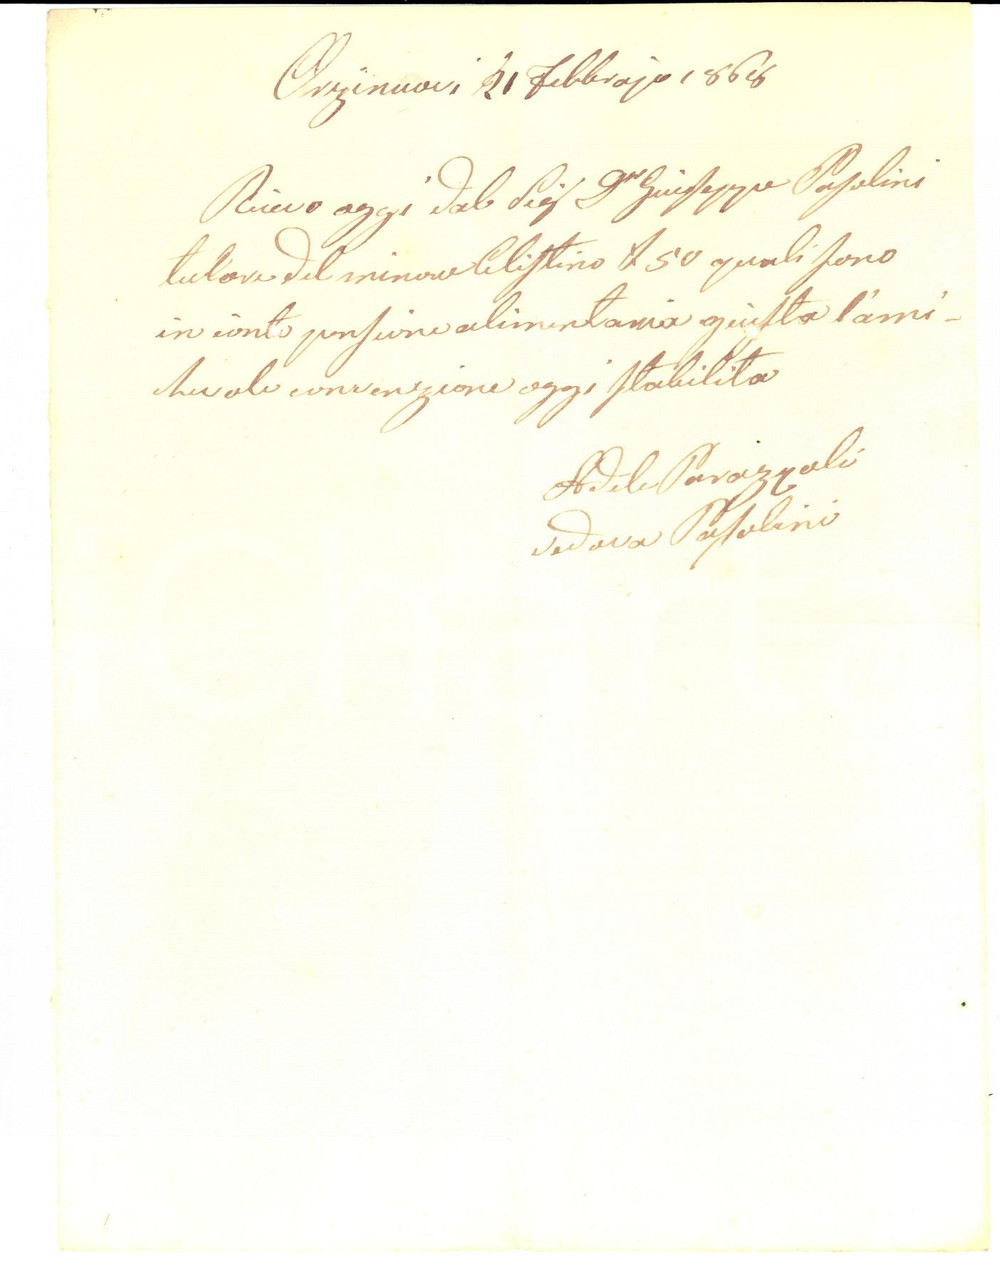 Orzinuovi 21 Febbrajo 1868
Ricevo oggi dal Sig. Dr Giuseppe Pasolini
tutore del minore Celestino £ 50 quali sono
in conto pensione alimentaria giusta l'ami-
chevole convenzione oggi stabilita
Adele Parazzoli
vedova Pasolini